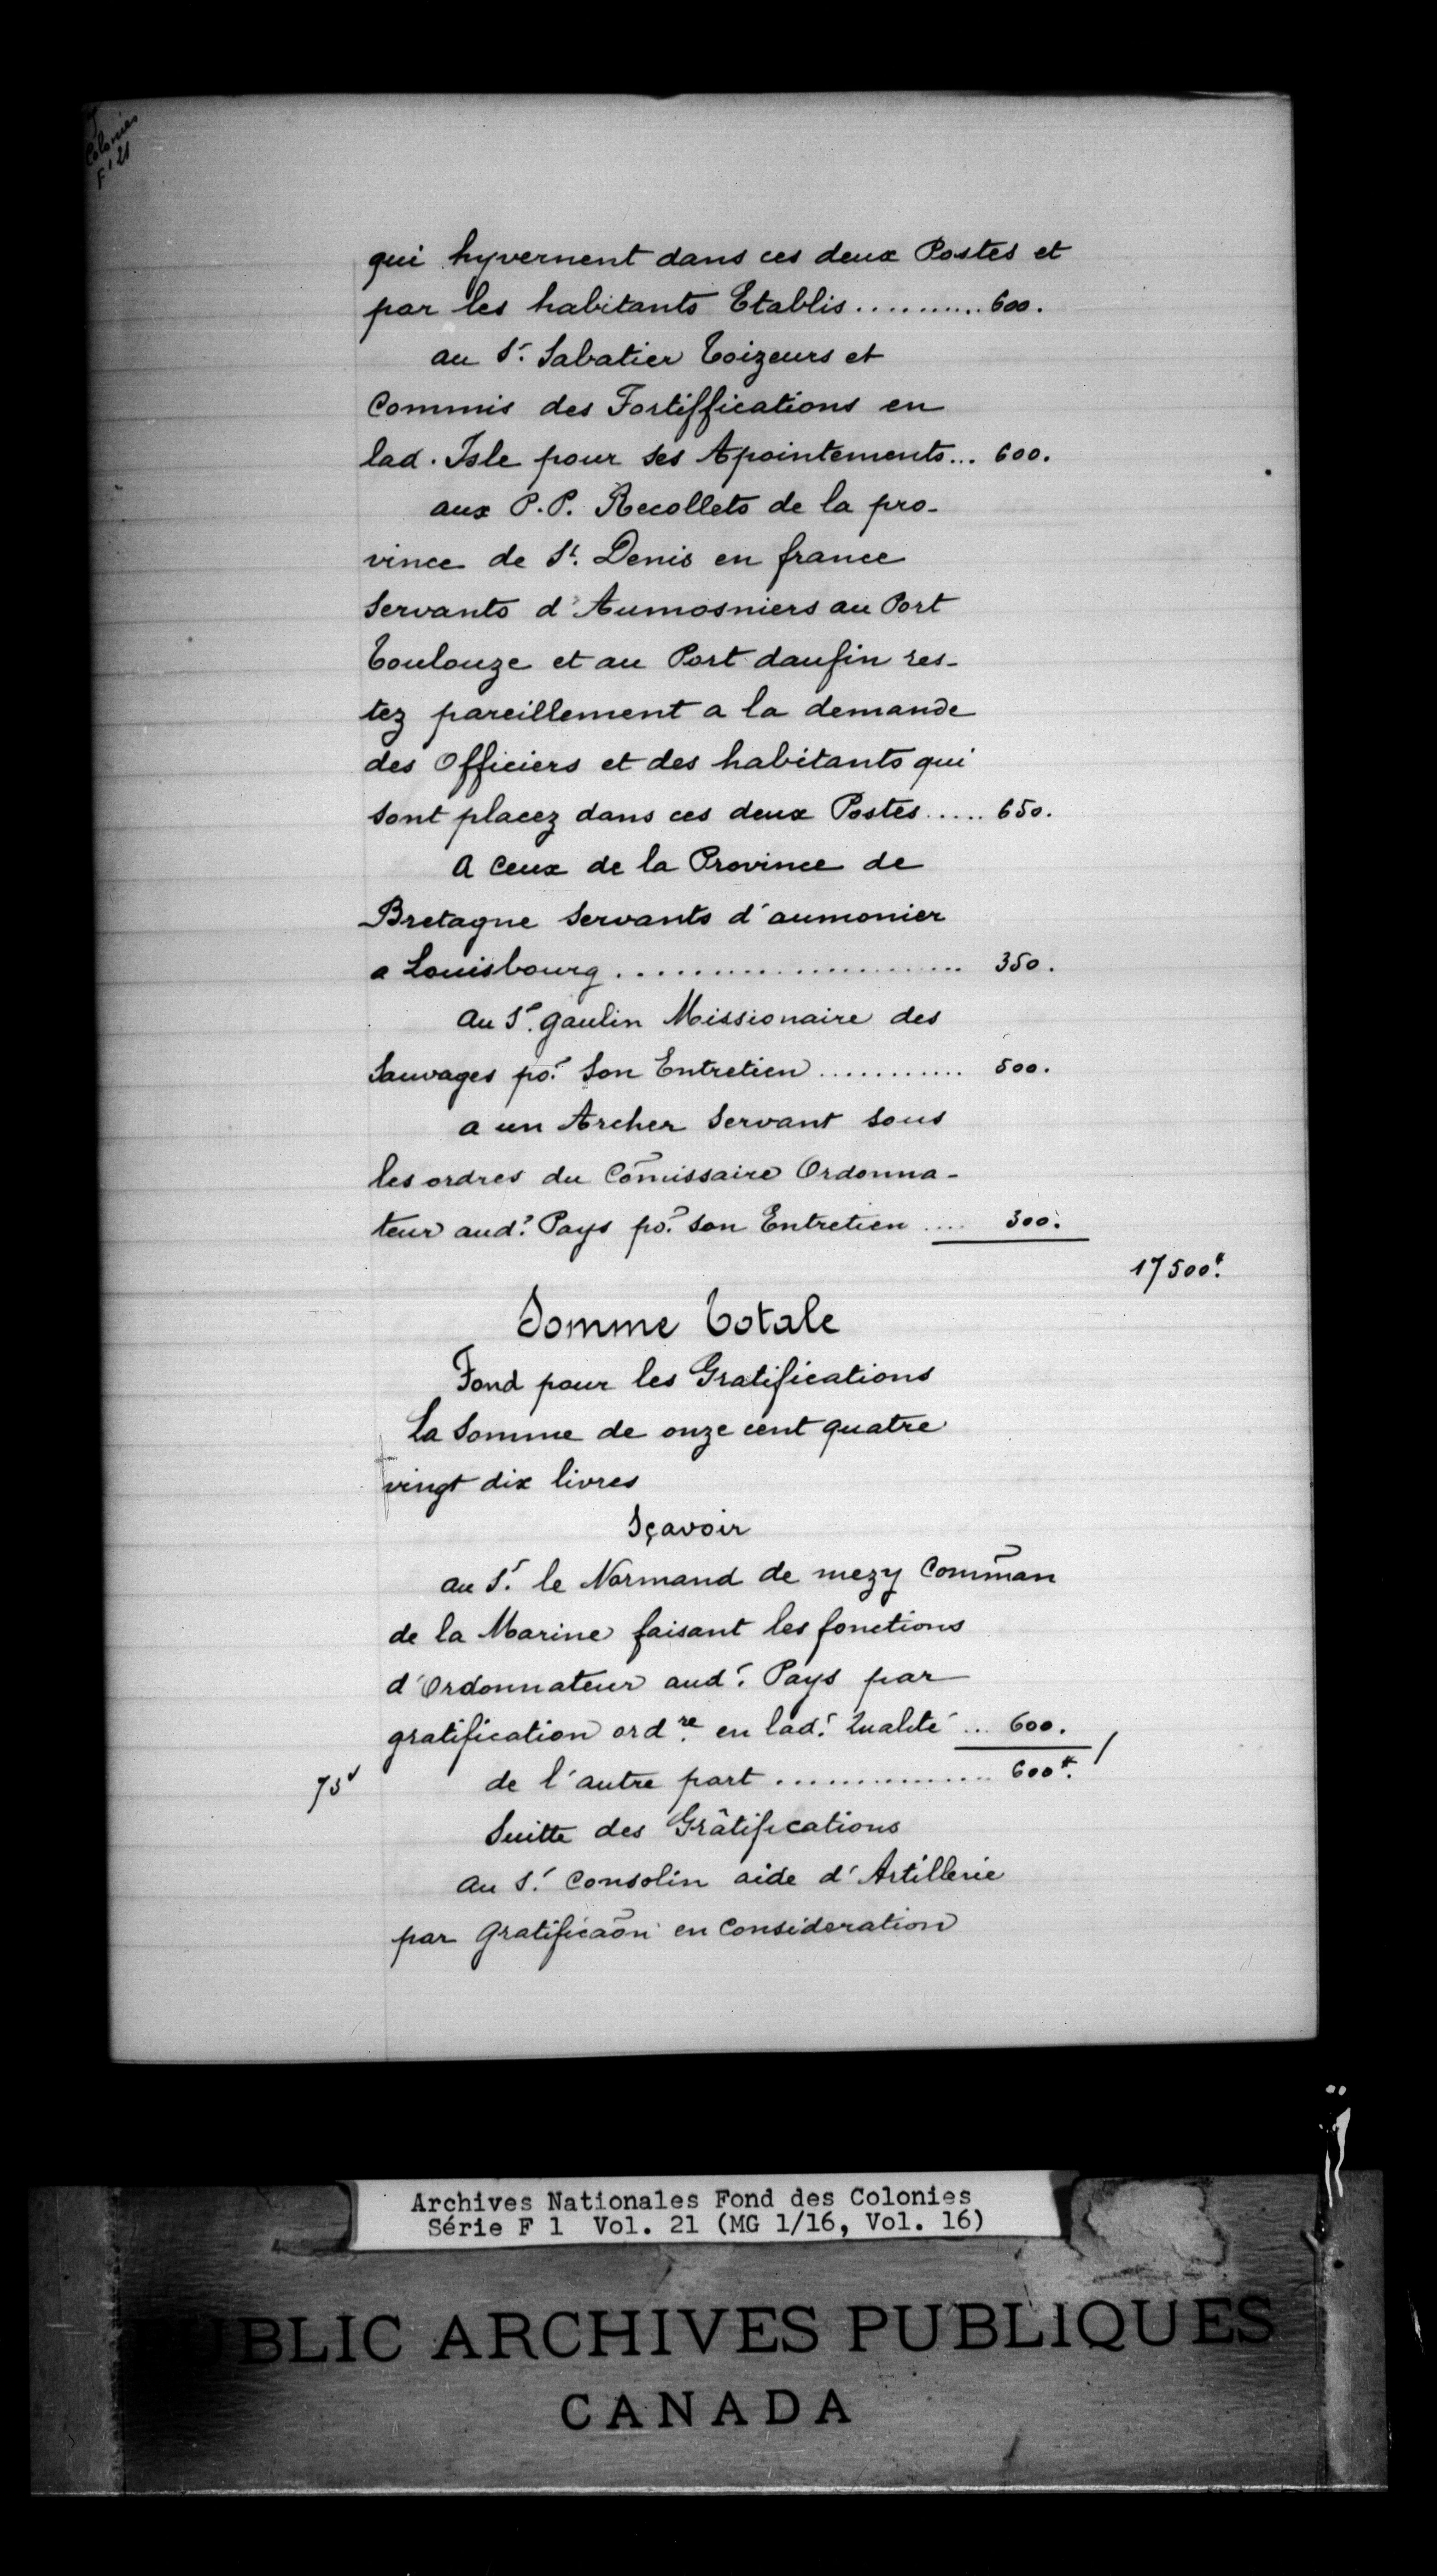 Colonies
F1 21
qui hyvernent dans ces deux Postes et
par les habitants Etablis........... 600.
au Sr. Sabatier Toizeurs et
Commis des Fortiffications en
lad. Isle pour ses Apointements... 600.
aux P.P. Recollets de la pro-
vince de St. Denis en france
Servants d'Aumosniers au Port
Toulouze et au Port daufin res-
tez pareillement a la demande
des Officiers et des habitants qui
sont placez dans ces deux Postes..... 650.
A Ceux de la Province de
Bretagne Servants d'aumonier
a Louisbourg...................... 350.
Au Sr. gaulin Missionaire des
Sauvages por. Son Entretien............ 500.
a un Archer Servant sous
les ordres du Com̃issaire Ordonna-
teur aud. Pays por. son Entretien.... 300.
17500tt.
Somme Totale
Fond pour les Gratifications
La Somme de onze cent quatre
vingt dix livres
Sçavoir
au Sr. le Normand de mezy Com̃an
de la Marine faisant les fonctions
d'Ordonnateur aud. Pays par
gratification ordre. en lad. Qualité... 600.
73v
de l'autre part............... 600tt.
Suitte des Grâtifications
Au Sr. Consolin aide d'Artillerie
par Gratificaõn en Consideration
Archives Nationales Fond des Colonies
Série F 1 Vol. 21 (MG 1/16, Vol. 16)
PUBLIC ARCHIVES PUBLIQUES
CANADA